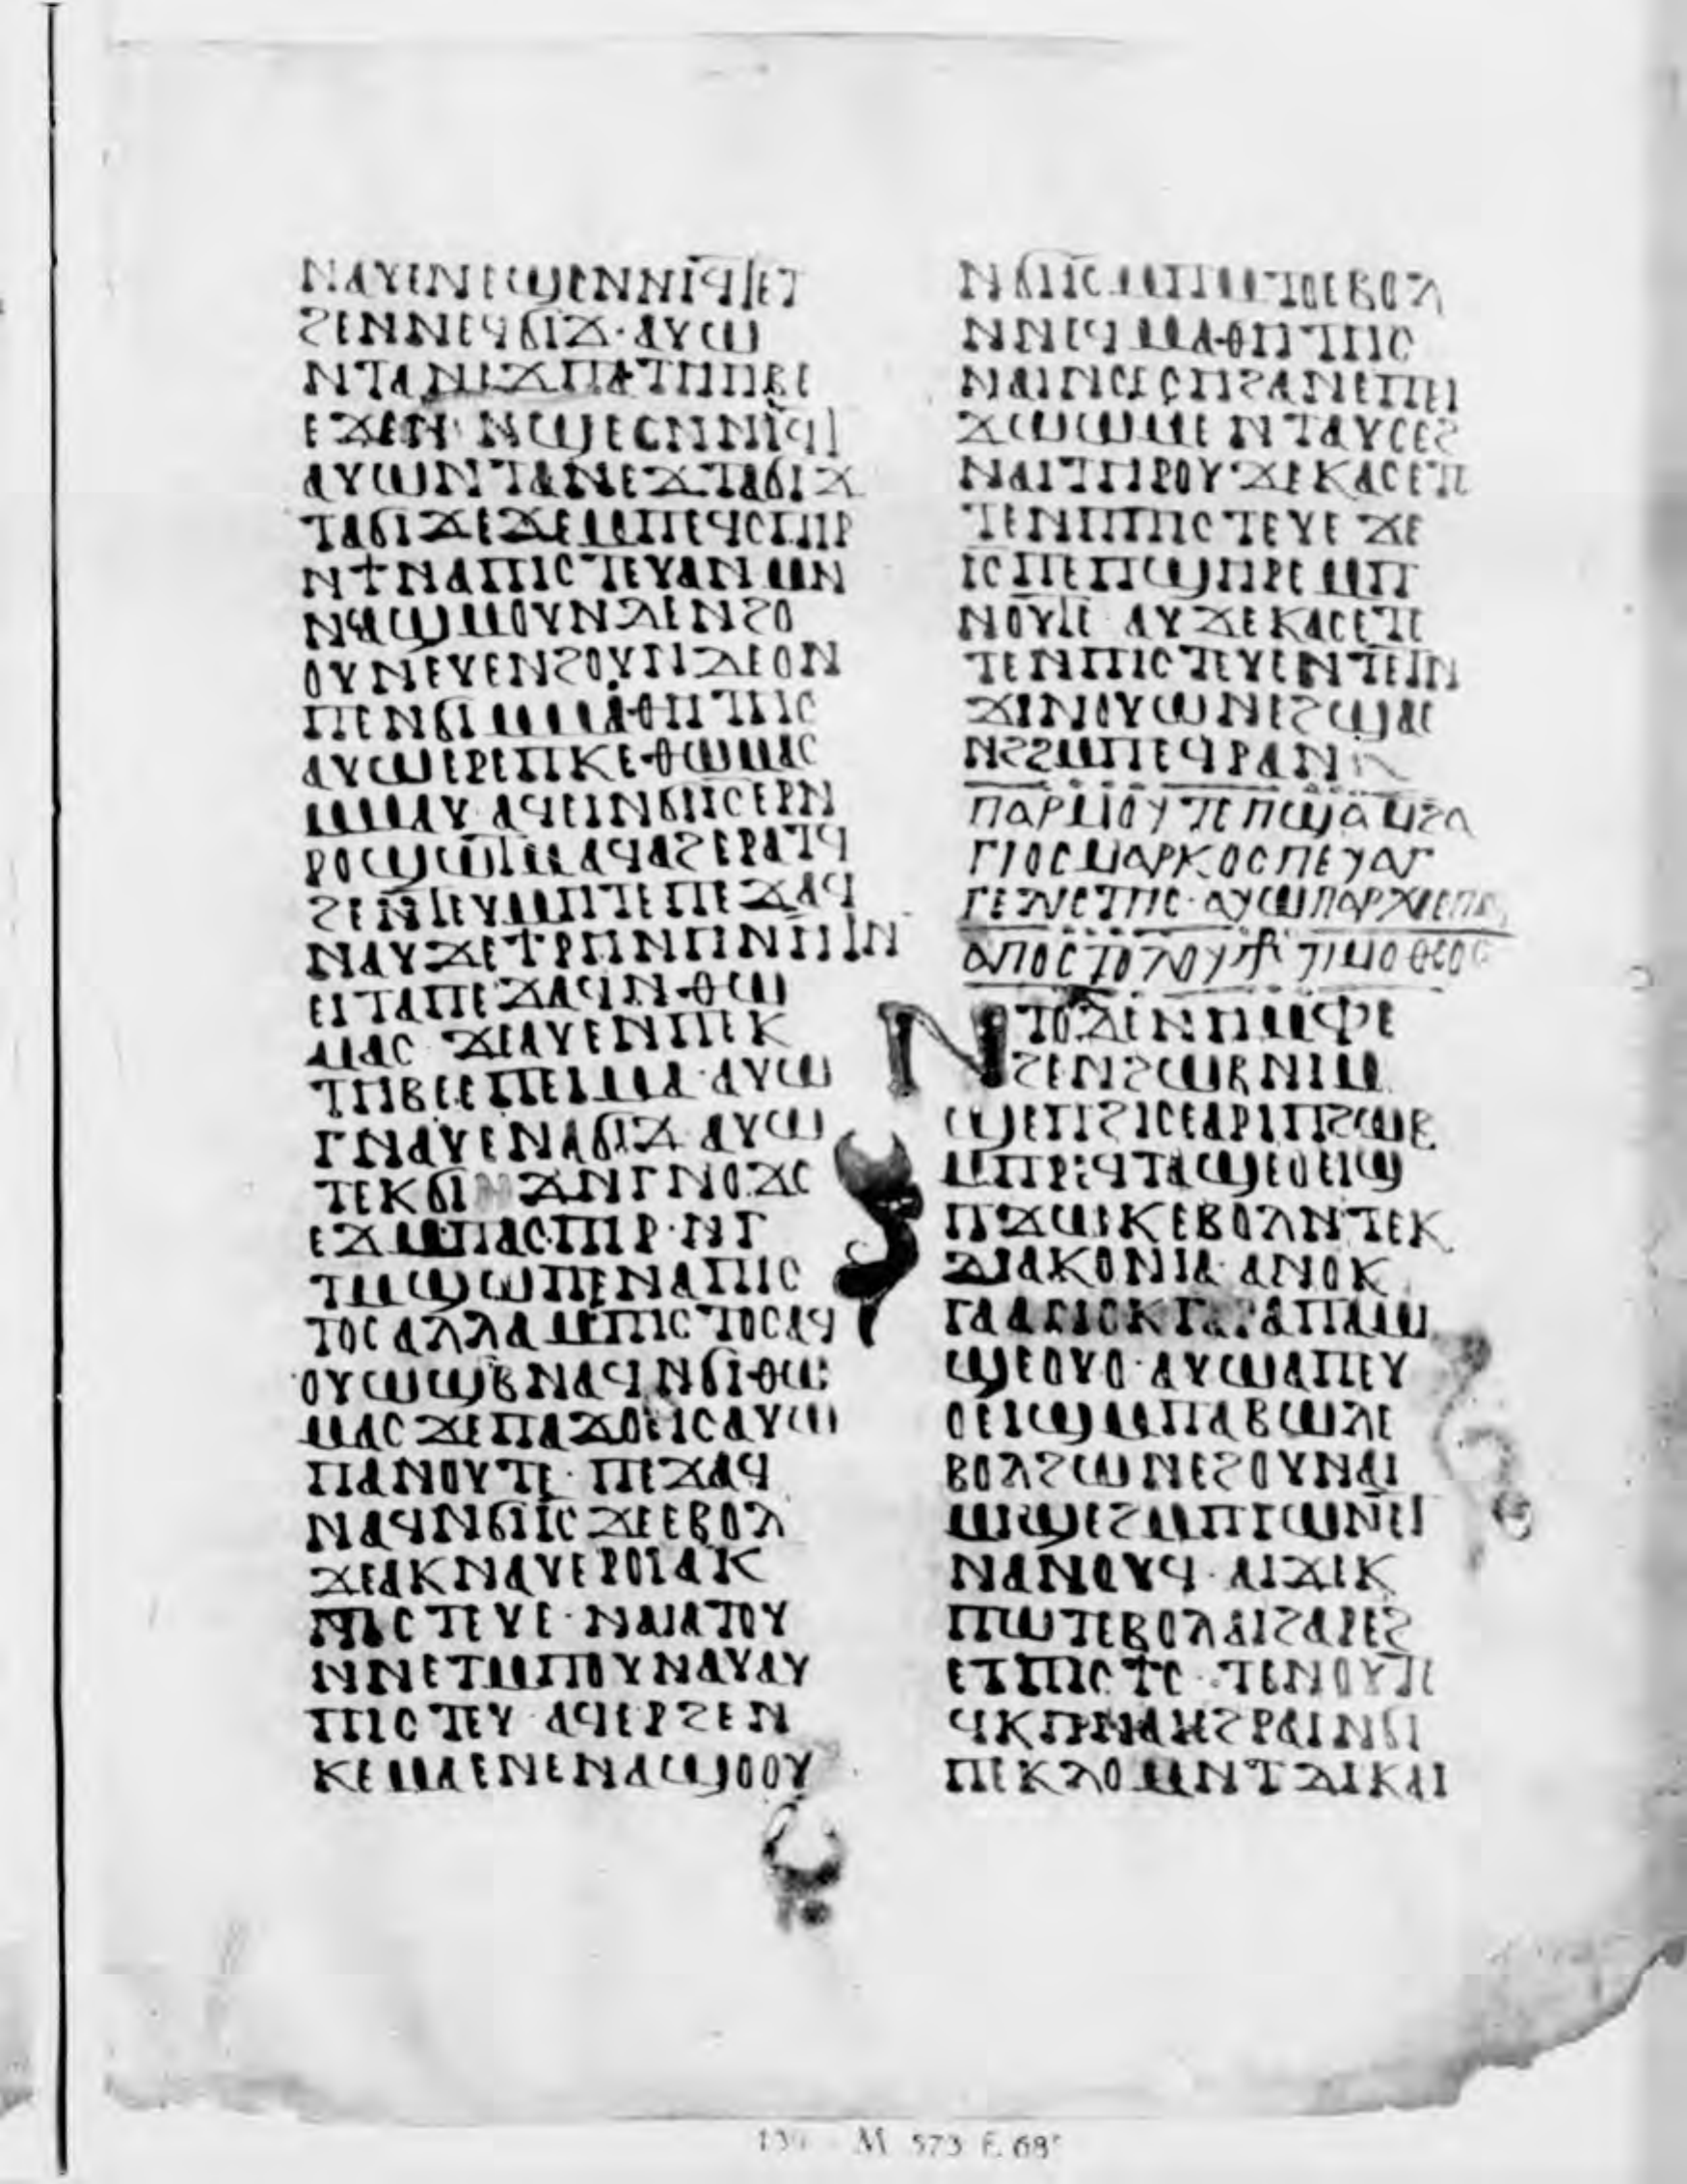 ⲛⲁⲩⲉⲛⲉϣⲉⲛⲛⲓϥⲓⲉⲧ
ϩⲉⲛⲛⲉϥϭⲓϫ· ⲁⲩⲱ
ⲛⲧⲁⲛⲉϫⲡⲁⲧⲏⲏⲃⲉ
ⲉϫⲉⲛ ⲛϣⲉⲥⲛⲛⲓϥⲓ
ⲁⲩⲱⲛⲧⲁⲛⲉϫⲧⲁϭⲓϫ
ⲧⲁϭⲓϫⲉϫⲉⲙⲡⲉϥⲥⲡⲓⲣ
ⲛϯⲛⲁⲡⲓⲥⲧⲉⲩⲁⲛ ⲙⲛ
ⲛⲥⲁϣⲙⲟⲩⲛⲇⲉⲛϩⲟ
ⲟⲩⲛⲉⲩⲉⲛϩⲟⲩⲛⲇⲉⲟⲛ
ⲡⲉⲛϭⲓⲙⲙⲁⲑⲏⲧⲏⲥ
ⲁⲩⲱⲉⲣⲉⲡⲕⲉⲑⲱⲙⲁⲥ
ⲙⲙⲁⲩ ⲁϥⲉⲓⲛϭⲓⲓⲥⲉⲣⲛ
ⲣⲟϣⲱⲧⲙ ⲁϥⲁϩⲉⲣⲁⲧϥ
ϩⲉⲛⲧⲉⲩⲙⲏⲧⲉ ⲡⲉϫⲁϥ
ⲛⲁⲩϫⲉϯⲣⲏⲛⲏⲛⲏⲧⲛ
ⲉⲓⲧⲁⲡⲉϫⲁϥⲛⲑⲱ
ⲙⲁⲥ ϫⲉⲁⲩⲉⲛⲡⲉⲕ
ⲧⲏⲃⲉⲉⲡⲉⲓⲙⲁ· ⲁⲩⲱ
ⲅⲛⲁⲩⲉⲛⲁϭⲓϫ ⲁⲩⲱ
ⲧⲉⲕϭⲓϫ ⲁⲛⲅⲛⲟϫⲥ
ⲉϫⲙⲡⲁⲥⲡⲓⲣ· ⲛⲅ
ⲧⲙϣⲱⲡⲉⲛⲁⲡⲓⲥ
ⲧⲟⲥ ⲁⲗⲗⲁ ⲙⲡⲓⲥⲧⲟⲥⲁϥ
ⲟⲩⲱϣⲃⲛⲁϥⲛϭⲓⲑⲱ
ⲙⲁⲥ ϫⲉⲡⲁϫⲟⲉⲓⲥⲁⲩⲱ
ⲡⲁⲛⲟⲩⲧⲉ· ⲡⲉϫⲁϥ
ⲛⲁϥⲛϭⲓⲓⲥ ϫⲉⲉⲃⲟⲗ
ϫⲉⲁⲕⲛⲁⲩⲉⲣⲟⲓⲁⲕ
ⲡⲓⲥⲧⲉⲩⲉ· ⲛⲁⲓⲁⲧⲟⲩ
ⲛⲛⲉⲧⲙⲡⲟⲩⲛⲁⲩⲁⲩ
ⲡⲓⲥⲧⲉⲩ· ⲁϥⲉⲣϩⲉⲛ
ⲕⲉⲙⲁⲉⲛⲉⲛⲁϣⲟⲟⲩ
ⲛϭⲓⲓⲥ ⲙⲡⲙⲧⲟⲉⲃⲟⲗ
ⲛⲛⲉϥⲙⲁⲑⲏⲧⲏⲥ
ⲛⲁⲓⲛⲥⲉⲥⲏϩⲁⲛⲉⲡⲉⲓ
ϫⲱⲱⲙⲉ ⲛⲧⲁⲩⲥⲉϩ
ⲛⲁⲓⲧⲏⲣⲟⲩ· ϫⲉⲕⲁⲥⲉⲧⲉ
ⲧⲉⲛⲡⲡⲓⲥⲧⲉⲩⲉ ϫⲉ
ⲓⲥ ⲡⲉⲡϣⲏⲣⲉ ⲙⲡ
ⲛⲟⲩⲧⲉ ⲁⲩ ϫⲉⲕⲁⲥⲉⲧⲉ
ⲧⲉⲛⲡⲓⲥⲧⲉⲩⲉⲛⲧⲉⲧⲛ
ϫⲓⲛⲟⲩⲱⲛⲉϩϣⲁⲉ
ⲛϩϩⲙⲡⲉϥⲣⲁⲛ
ⲡⲁⲣⲙⲟⲩⲧⲉ ⲡϣⲁ ⲙϩⲁ
ⲅⲓⲟⲥ ⲙⲁⲣⲕⲟⲥ ⲡⲉⲩⲁⲅ
ⲅⲉⲗⲓⲥⲧⲏⲥ· ⲁⲩⲱ ⲡⲁⲣⲭⲓⲉⲡⲥ
ⲁⲡⲟⲥⲧⲟⲗⲟⲩ ⲧⲓⲙⲟⲑⲉⲟⲥ
ⲛⲧⲟⲇⲉ ⲛⲏⲙⲫⲉ
ϩⲉⲛϩⲱⲃ ⲛⲓⲙ
ϣⲉⲡϩⲓⲥⲉ ⲁⲣⲓⲡϩⲱⲃ
ⲙⲡⲣⲉϥⲧⲁϣⲉⲟⲉⲓϣ
ⲡϫⲱⲕ ⲉⲃⲟⲗ ⲛⲧⲉⲕ
ⲇⲓⲁⲕⲟⲛⲓⲁ· ⲁⲛⲟⲕ
ⲅⲁⲣ ⲁⲡⲁⲙ
ϣⲉⲟⲩⲟ· ⲁⲩⲱⲁⲡⲉⲩ
ⲟⲉⲓϣ ⲙⲡⲁⲃⲱⲗⲉ
ⲃⲟⲗϩⲱⲛⲉϩⲟⲩⲛⲁⲓ
ⲙⲓϣⲉϩⲙⲡⲓⲅⲱⲛⲉⲓ
ⲛⲁⲛⲟⲩϥ· ⲁⲓϫⲉⲕ
ⲡⲱⲧⲉⲃⲟⲗⲁⲓϩⲁⲣⲉϩ
ⲉⲧⲡⲓⲥϯⲥ· ⲧⲉⲛⲟⲩⲧⲉ
ϥⲕⲏ ⲛⲁⲓ ⲉϩⲣⲁⲓⲛϭⲓ
ⲡⲉⲕⲗⲟⲙⲛⲧⲇⲓⲕⲁⲓ
M 573 F. 68ʳ